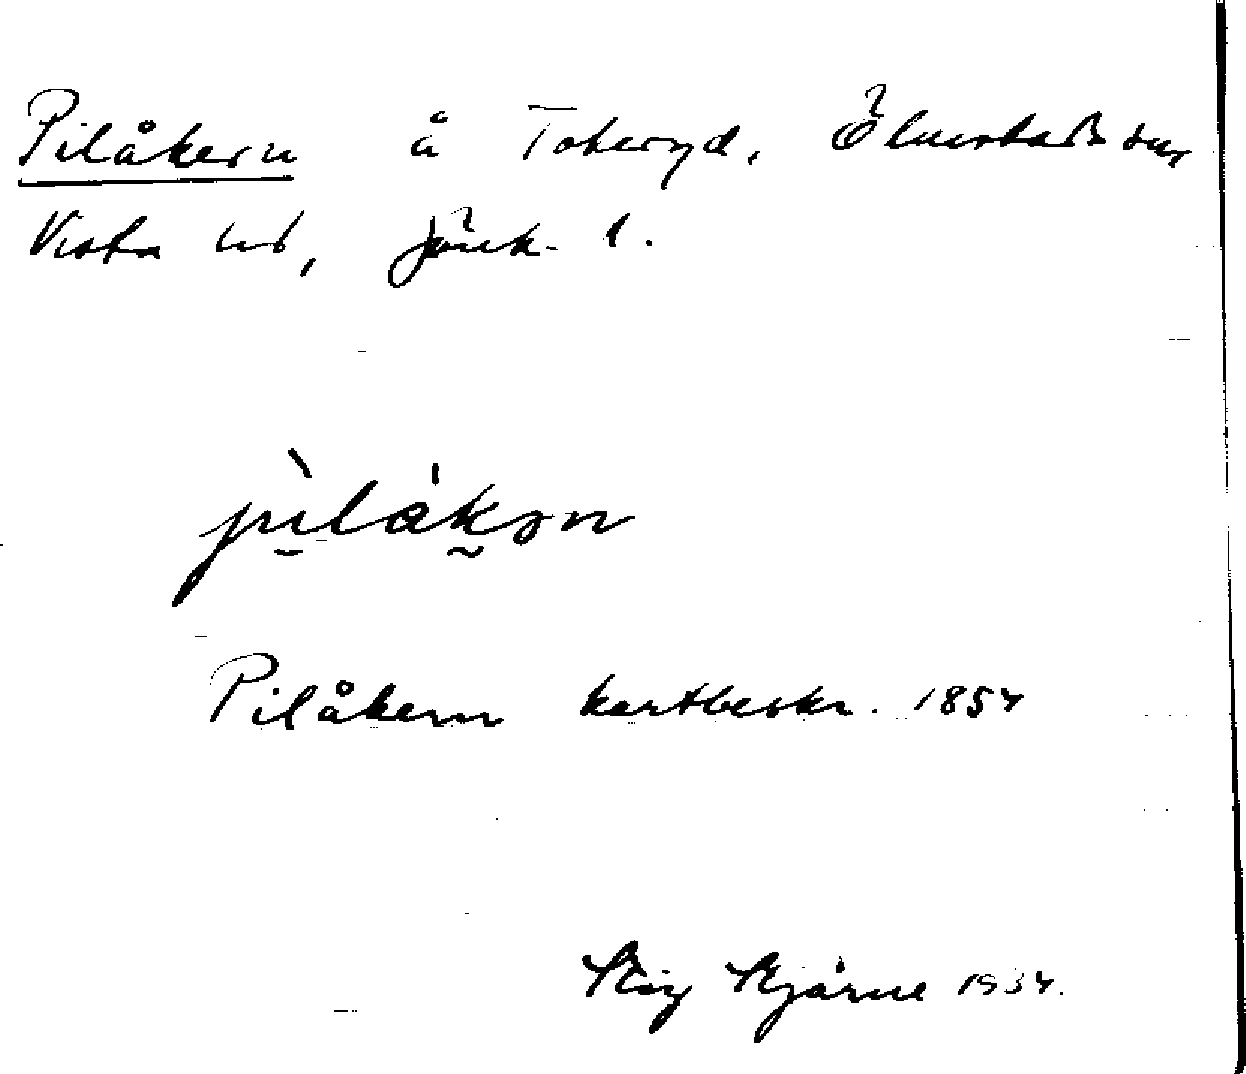 Pilåkern å Tokeryd, Ölmstads sn,
Vista hd, Jönk. l.
pìlåkən
Pilåkern kartbeskr. 1854
Stig Stjärne 1934.